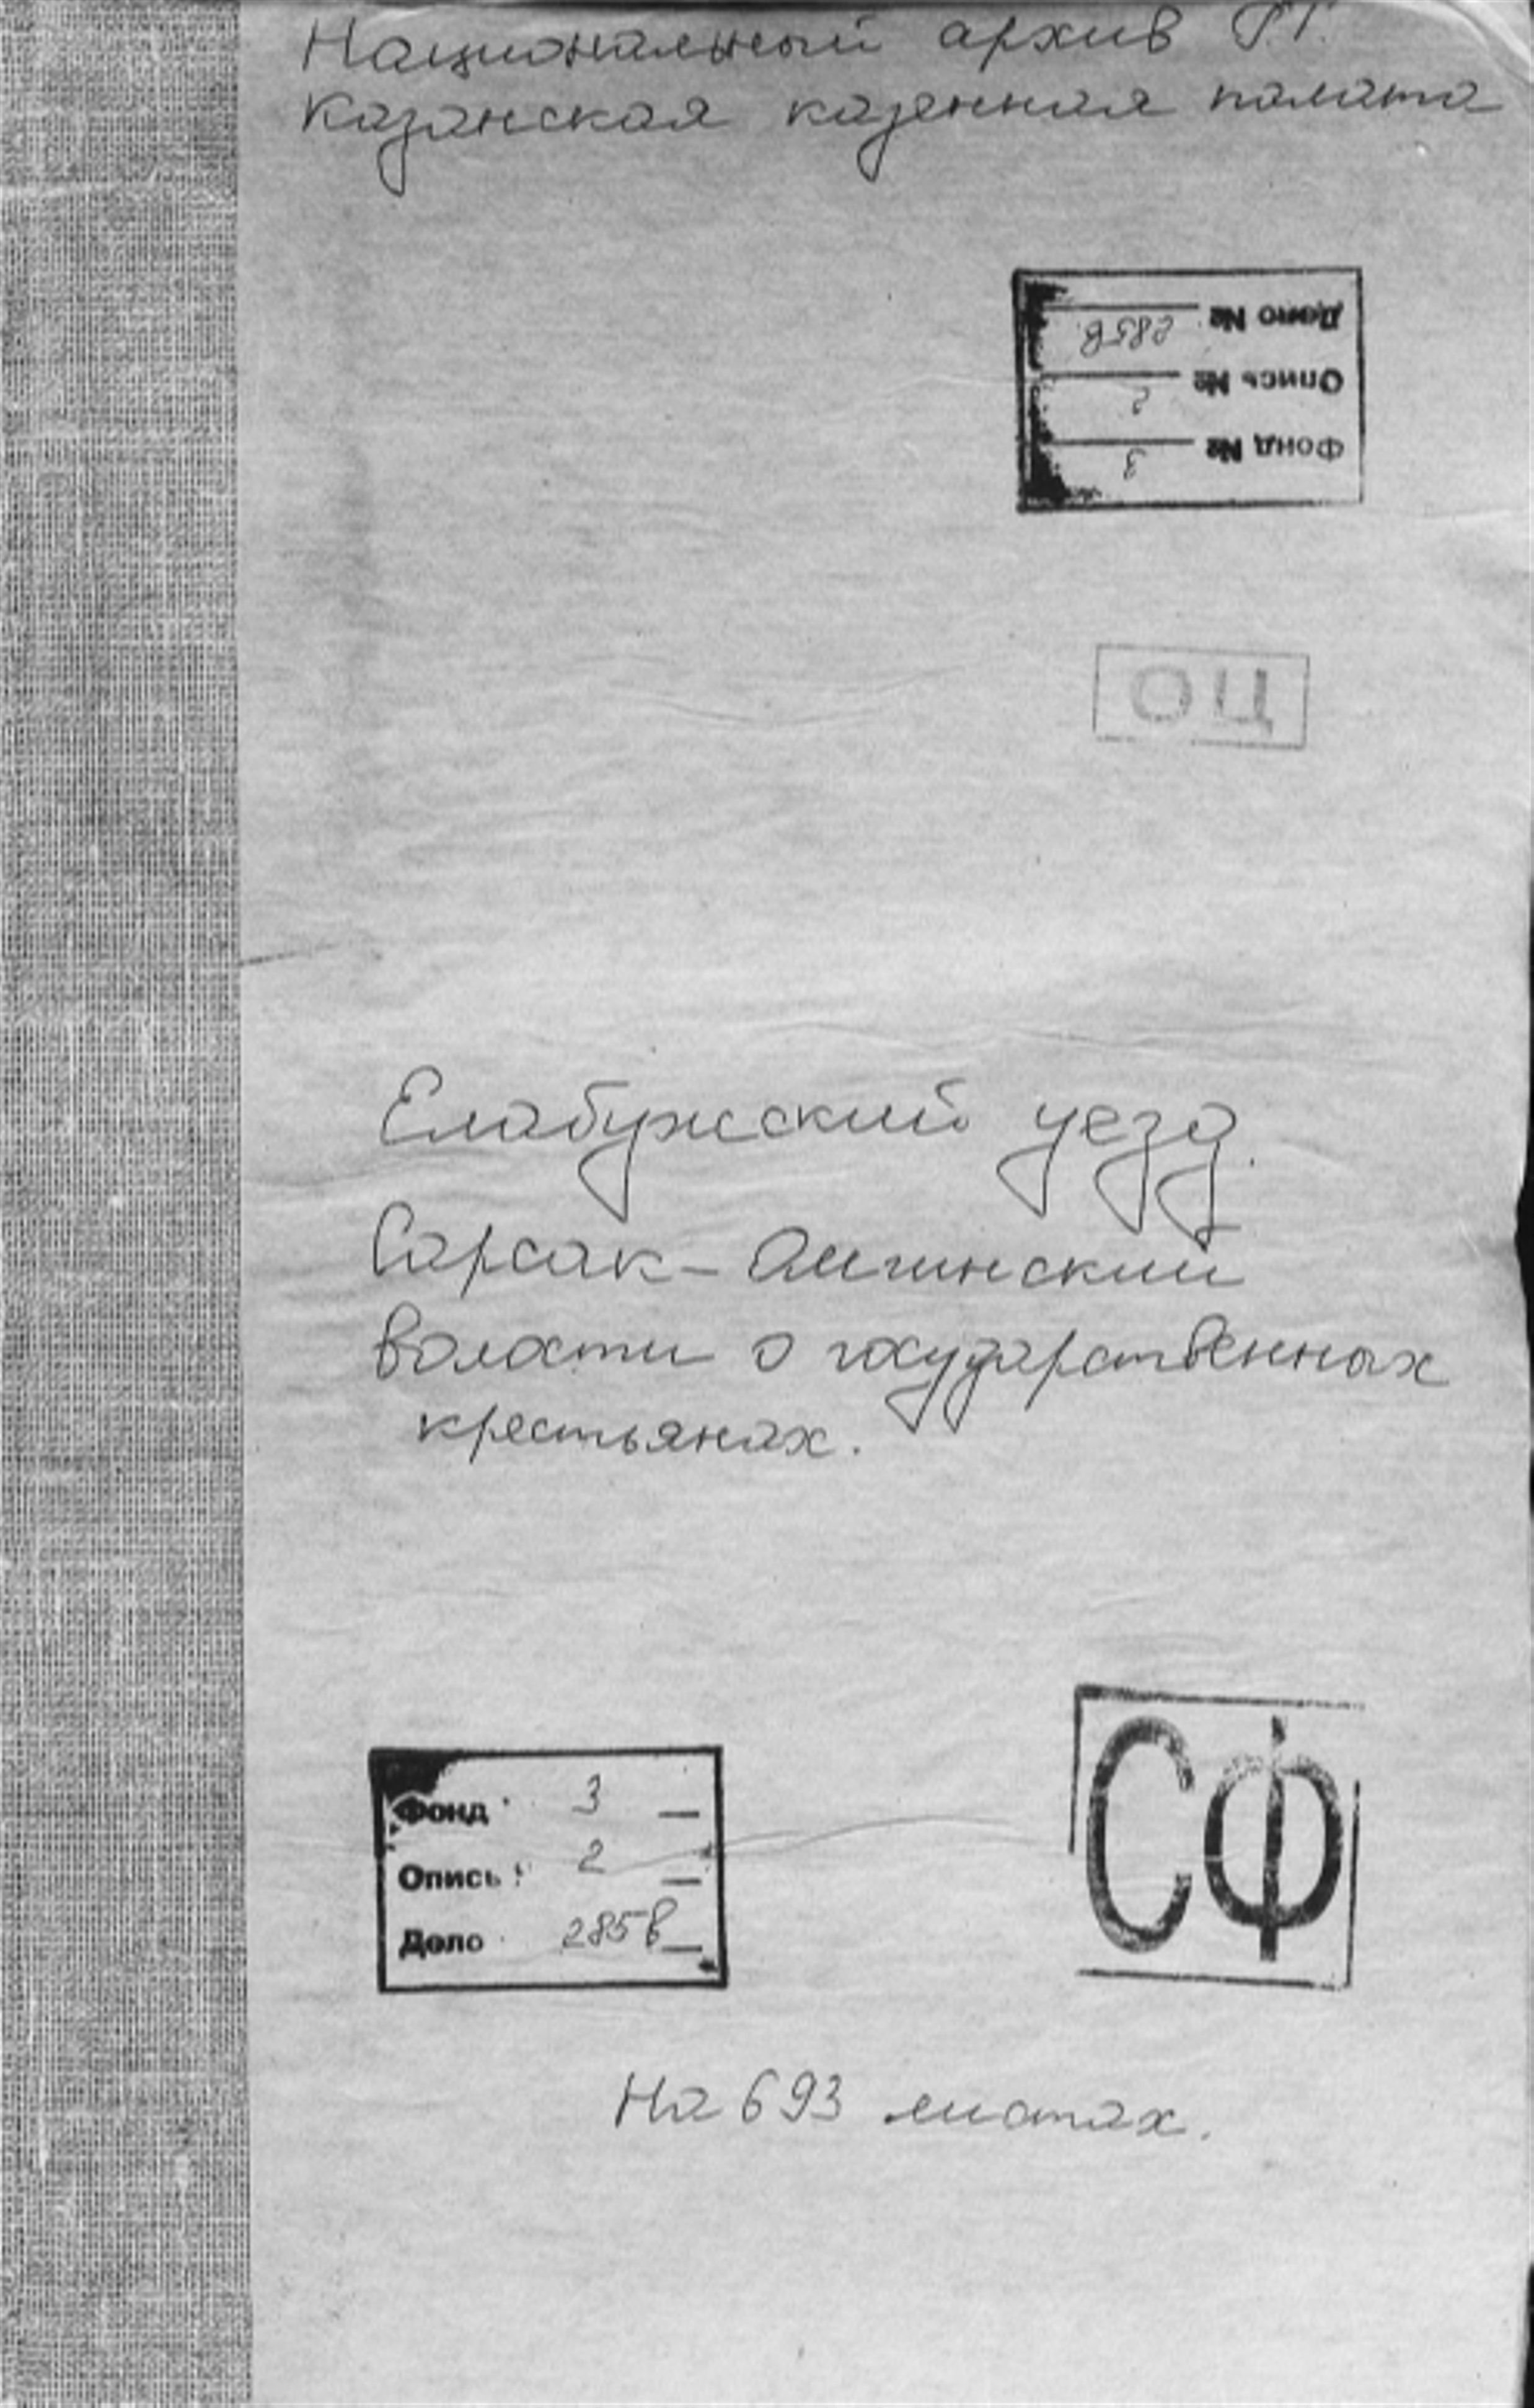 Национальный архив Р.Т.
Казанская казенная палата
Дело № 285в
Опись № 2
Фонд № 3
ЦО
Елабужский уезд.
Сарсак-Омгинский
волости о государственных
крестьянах.
Фонд 3
Опись 2
Дело 285в
СФ
На 693 листах.